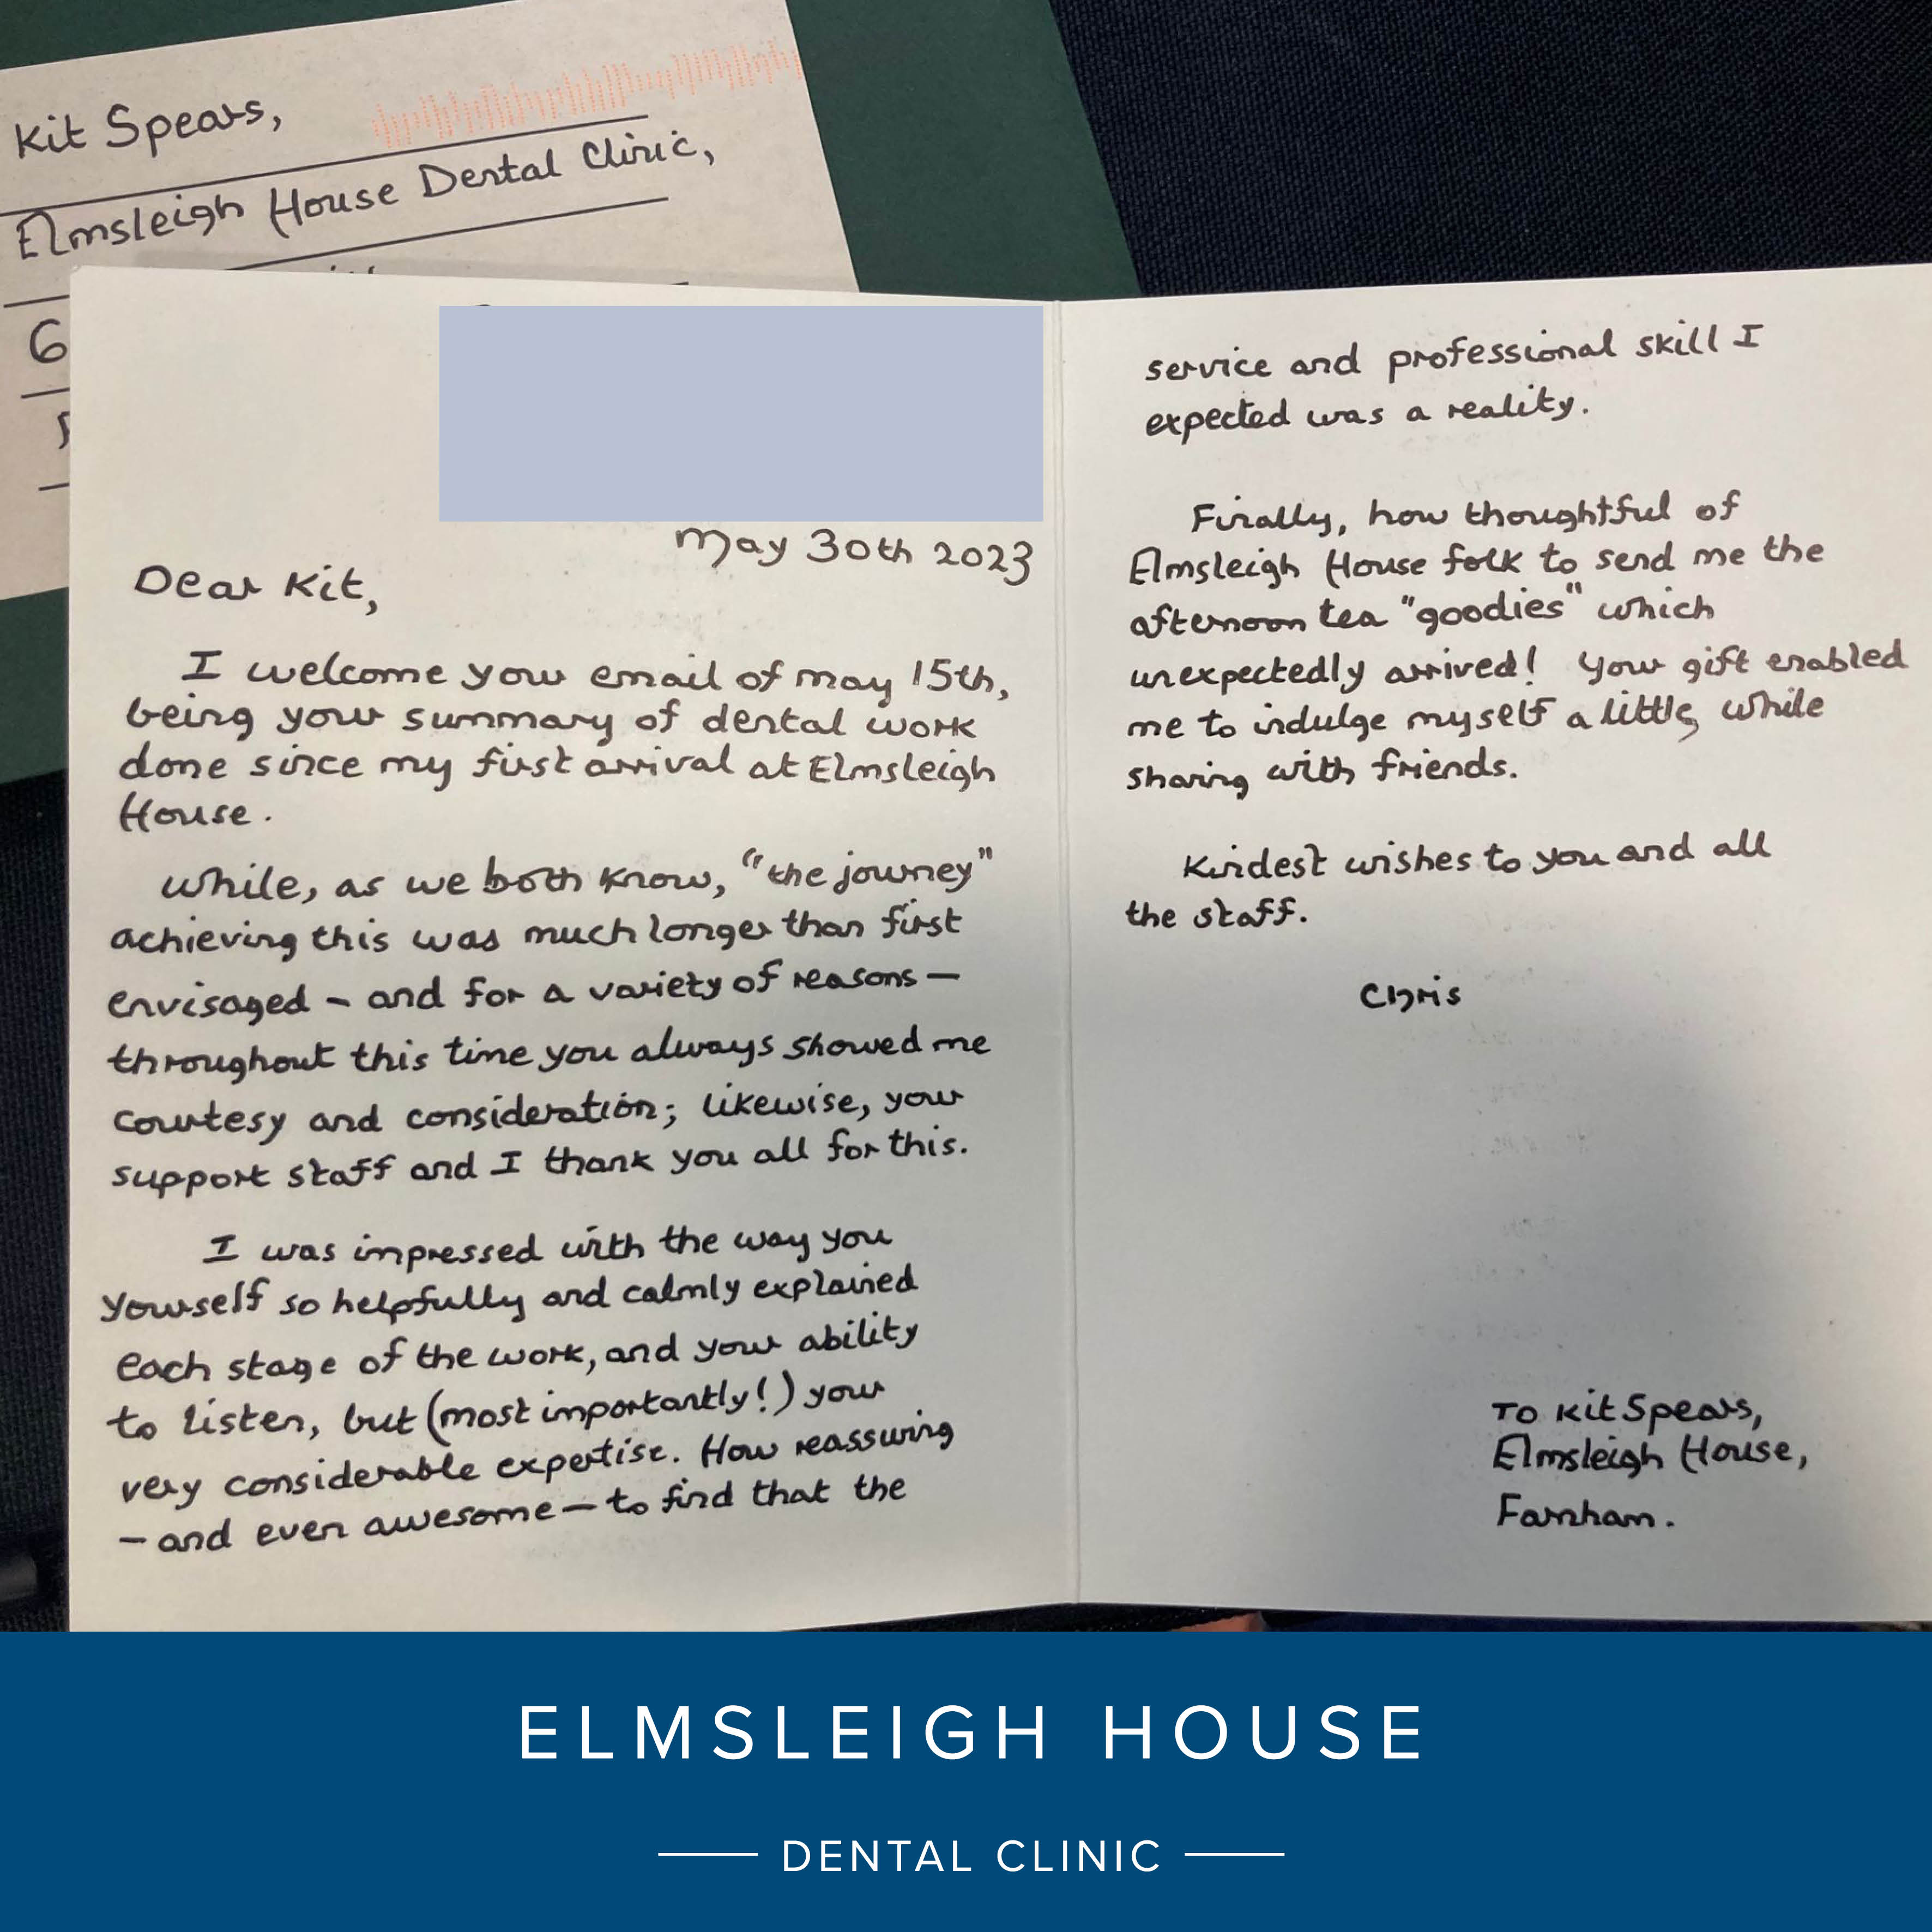 Kit Spears,
Elmsleigh House Dental Clinic,
6
May 30th 2023
Dear Kit,
I welcome your email of may 15th,
being your summary of dental work
done since my first arrival at Elmsleigh
House.
While, as we both know, "the journey"
achieving this was much longer than first
envisaged – and for a variety of reasons –
throughout this time you always showed me
courtesy and consideration; likewise, your
support staff and I thank you all for this.
I was impressed with the way you
yourself so helpfully and calmly explained
each stage of the work, and your ability
to listen, but (most importantly!) your
very considerable expertise. How reassuring
– and even awesome – to find that the
service and professional skill I
expected was a reality.
Finally, how thoughtful of
Elmsleigh House folk to send me the
afternoon tea "goodies" which
unexpectedly arrived! Your gift enabled
me to indulge myself a little, while
sharing with friends.
Kindest wishes to you and all
the staff.
Chris
To Kit Spears,
Elmsleigh House,
Farnham.
ELMSLEIGH HOUSE
DENTAL CLINIC